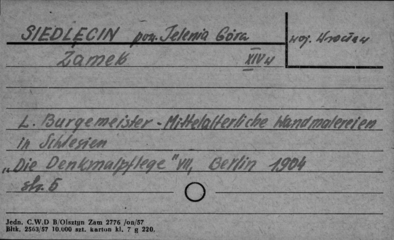 SIEDLĘCIN pow. Jelenia Góra woj. Wrocław
Zamek XIV w
L. Burgemeister - Mittelalterliche Wandmalereien
in Schlesien
„Die Denkmalpflege" VII, Berlin 1904
str. 6
Jedn. C.W.D B/Olsztyn Zam 2776 /on/57
Bltk. 2563/57 10.000 szt. karton kl. 7 g 220.